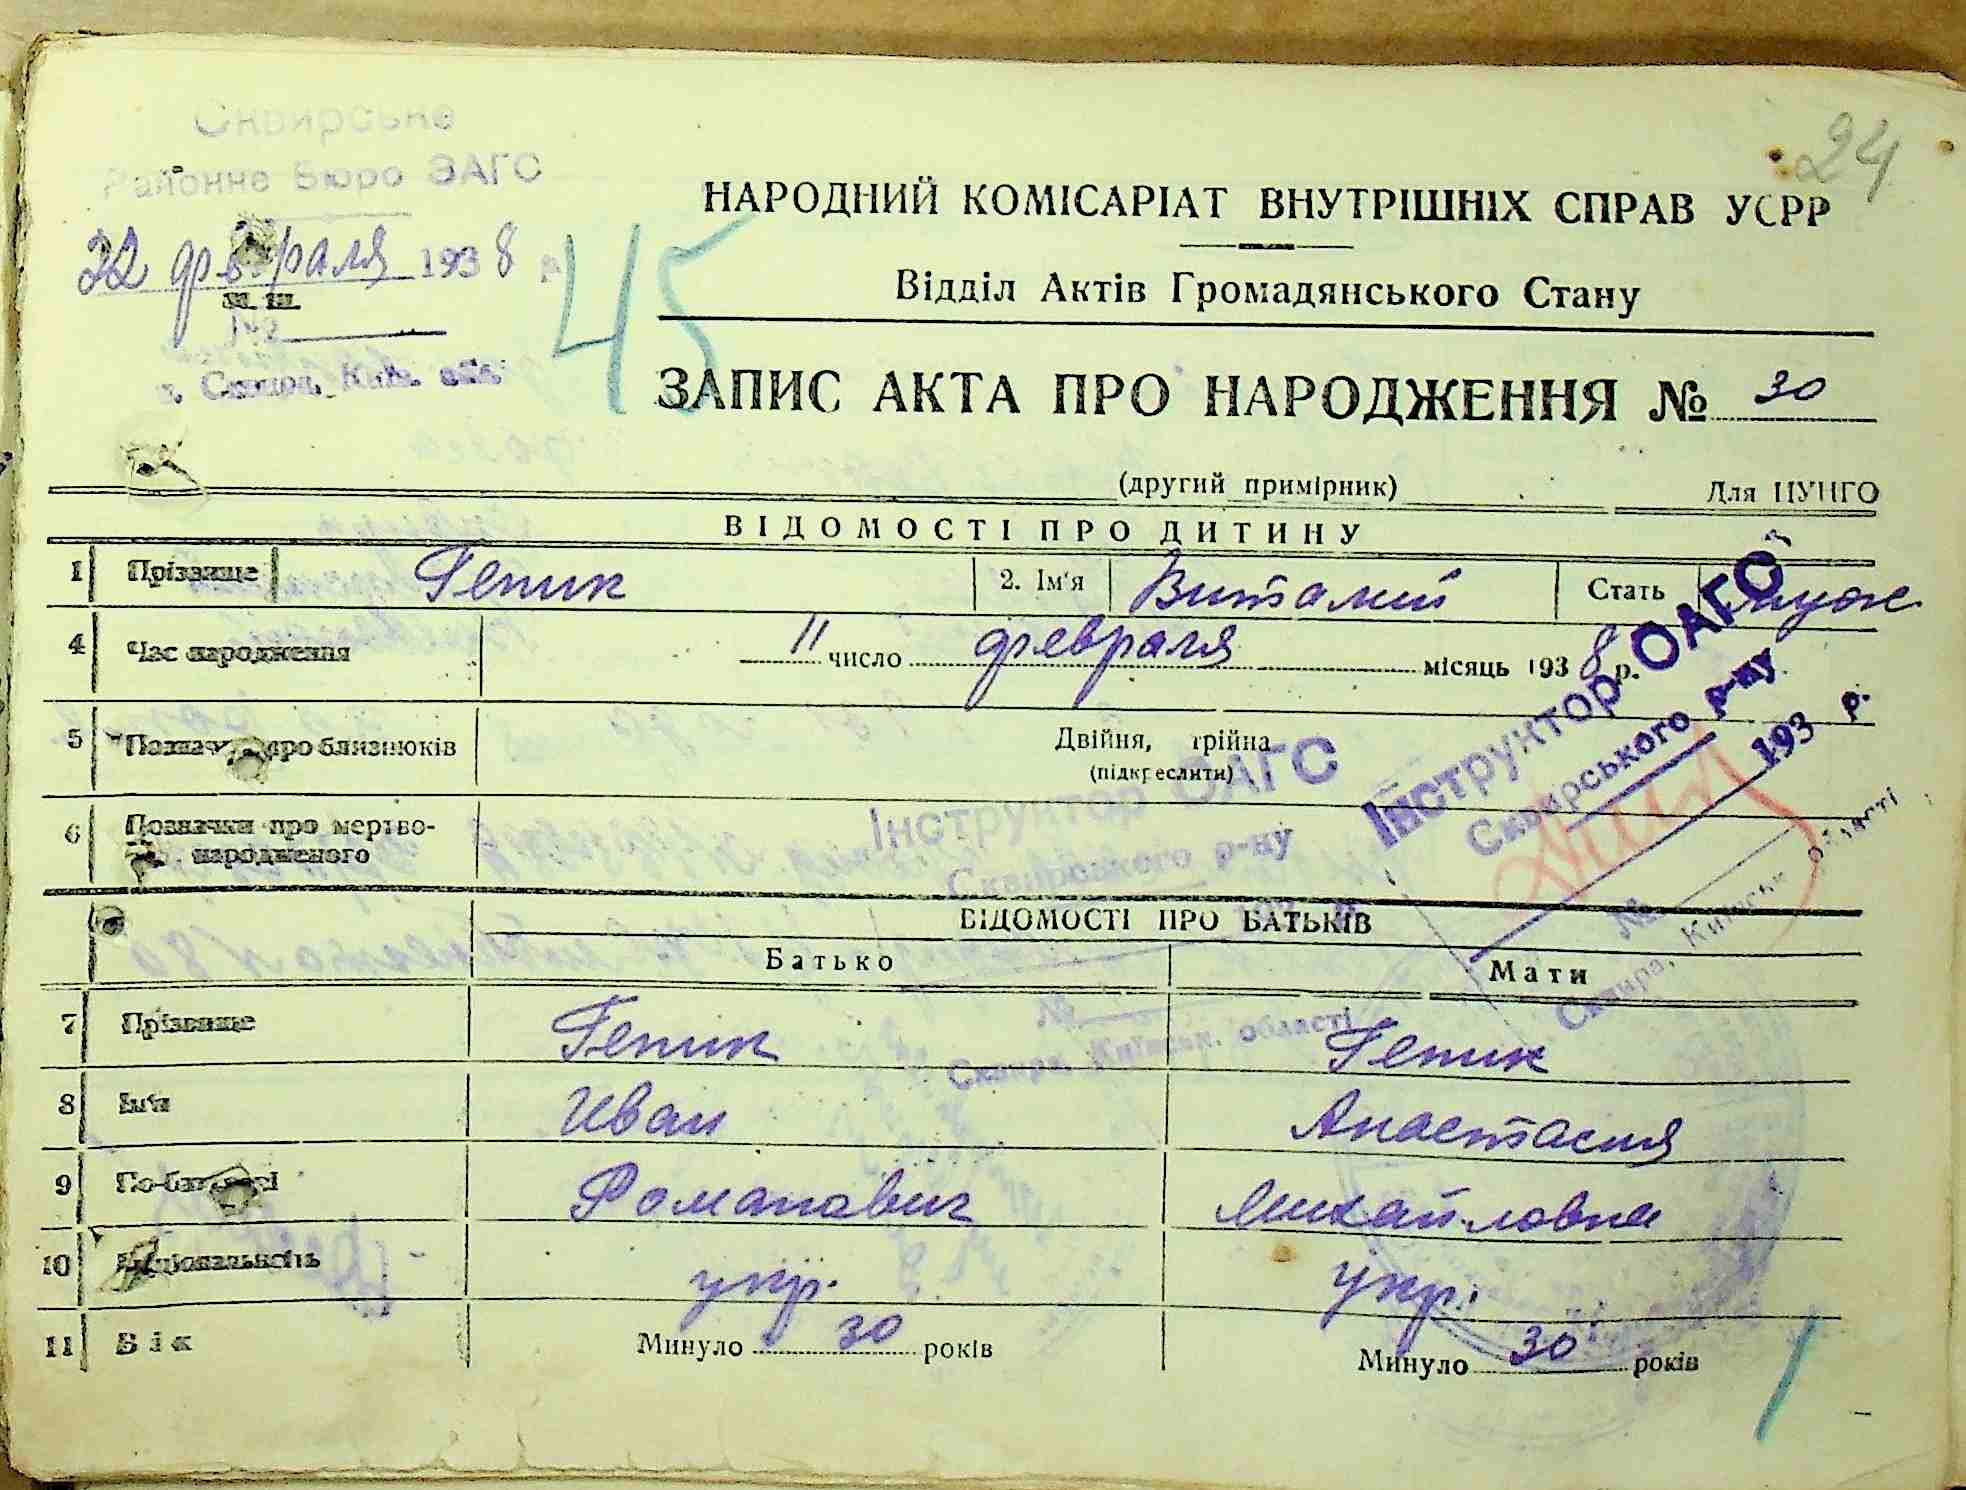 24
Сквирське
Районне Бюро ЗАГС
22 февраля 1938 р
№
м. Сквира, Київ. обл.
45
НАРОДНИЙ КОМІСАРІАТ ВНУТРІШНІХ СПРАВ УСРР
Відділ Актів Громадянського Стану
ЗАПИС АКТА ПРО НАРОДЖЕННЯ № 30
(другий примірник) Для ЦУНГО
ВІДОМОСТІ ПРО ДИТИНУ
1 Прізвище Гепик 2. Ім'я Виталий Стать муж
4 Час народження 11 число февраля місяць 1938 р.
5 Позначки про близнюків Двійня, трійна
(підкреслити)
6 Позначки про мертво-
народженого
Інструктор ОАГС
Сквирського р-ну
193 р.
№
Сквира, Київськ. області
Інструктор ОАГС
Сквирського р-ну
№
Сквира, Київськ. області
ВІДОМОСТІ ПРО БАТЬКІВ
Батько Мати
7 Прізвище Гепик Гепик
8 Ім'я Иван Анастасия
9 По-батькові Романавич Михайловна
10 Національність укр. укр.
11 Вік Минуло 30 років Минуло 30 років